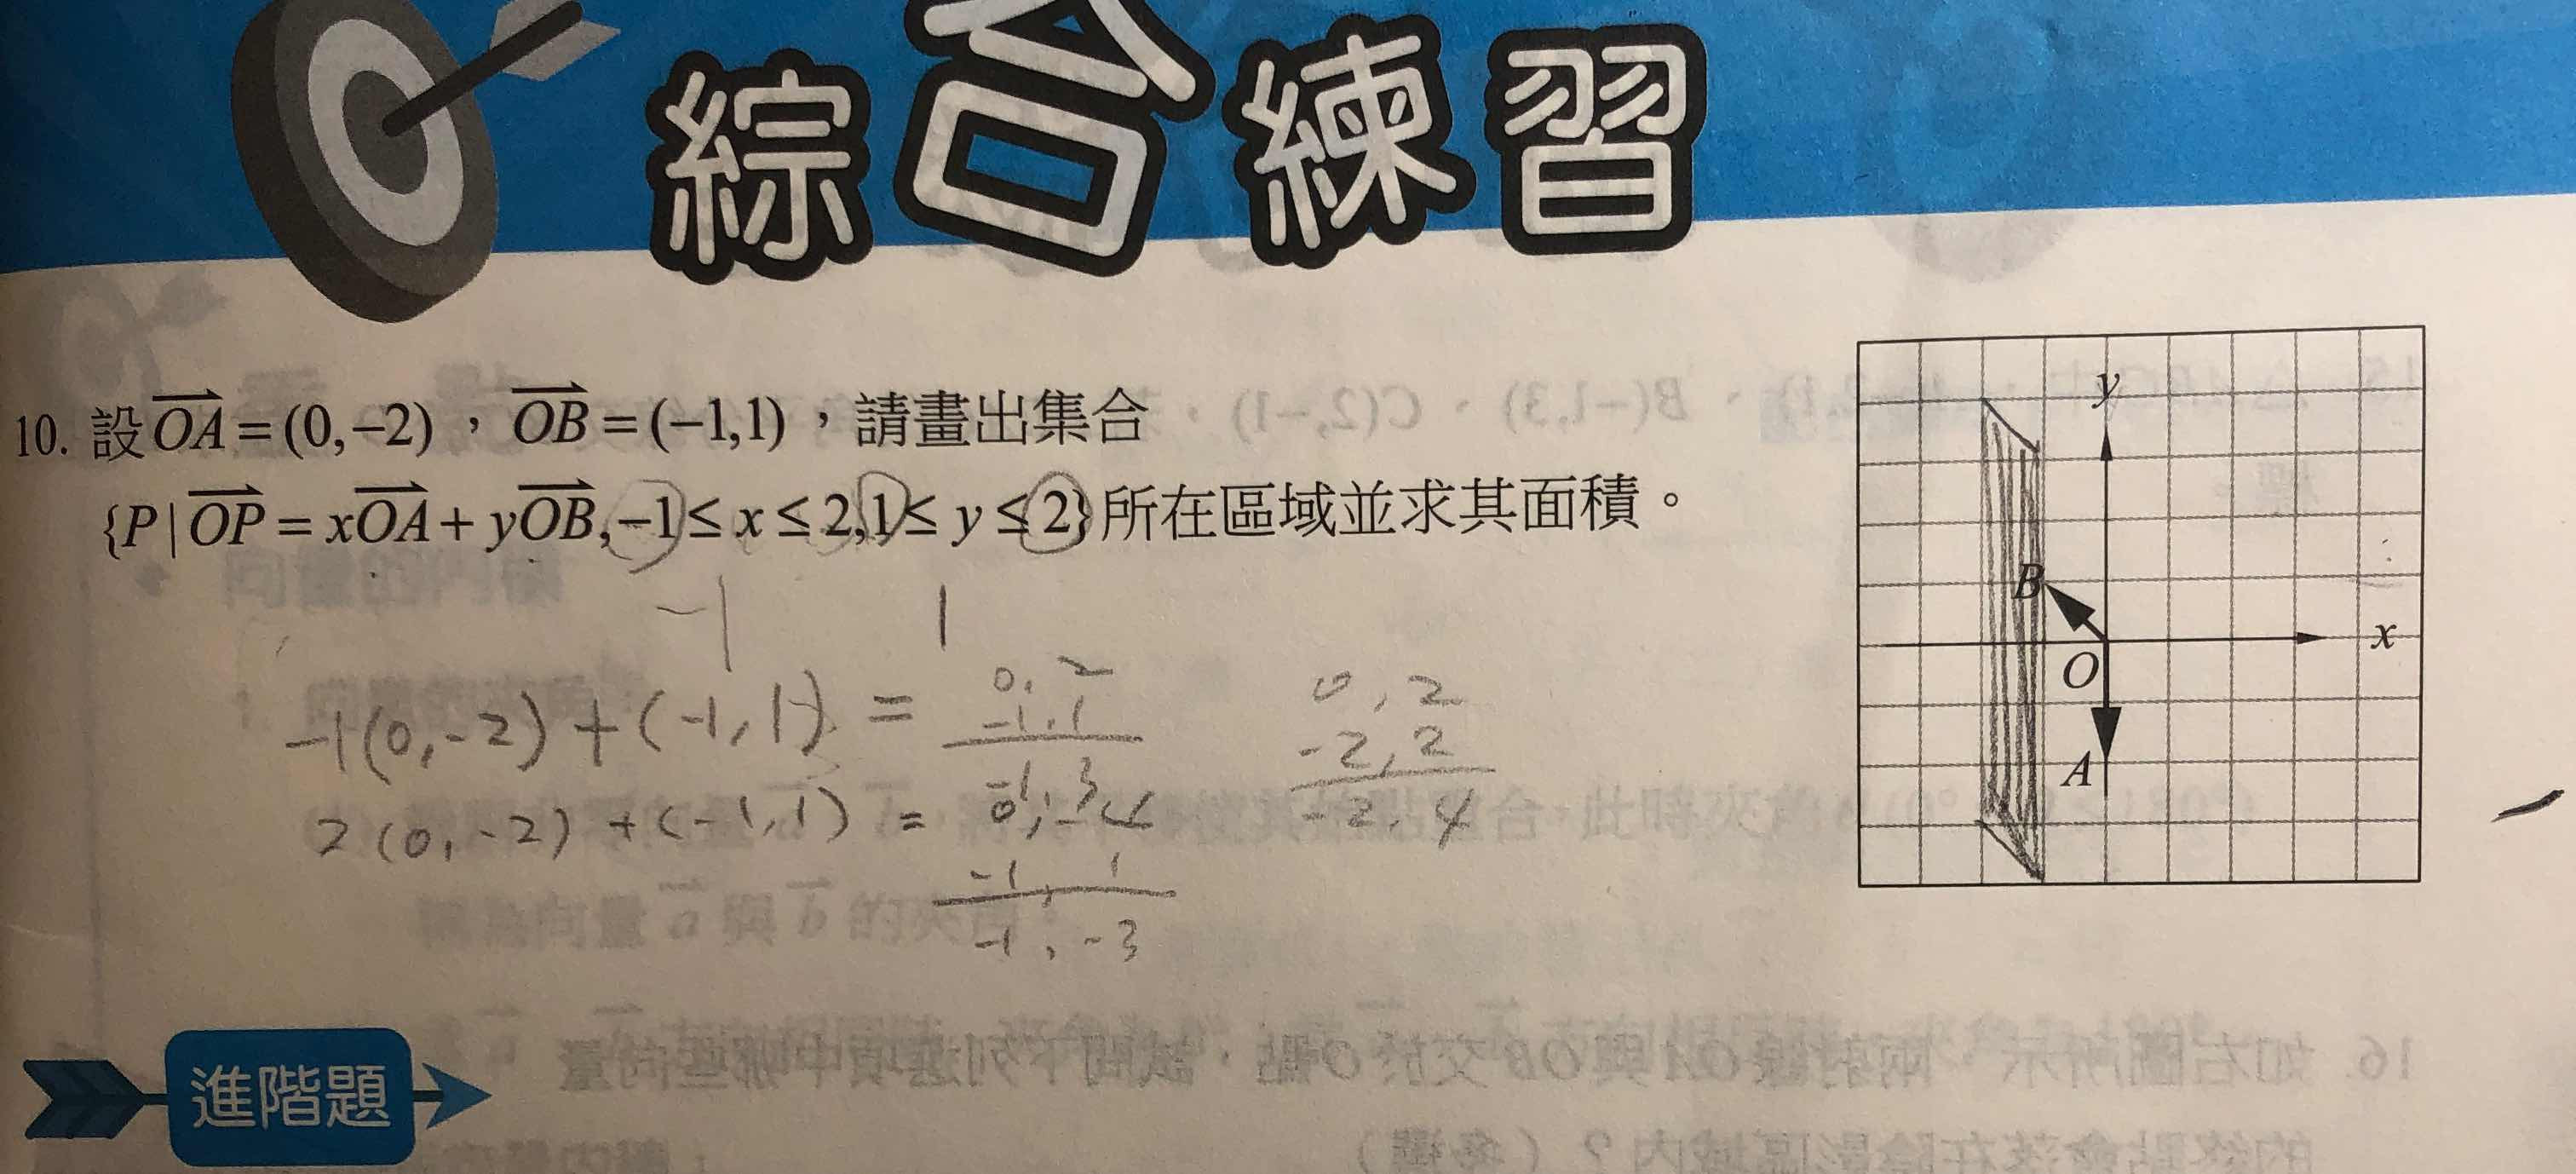 綜合練習
10. 設OA=(0,-2)，OB=(-1,1)，請畫出集合
{P|OP=xOA+yOB,-1≤x≤2,1≤y≤2}所在區域並求其面積。
-1 1
-1(0,-2)+(-1,1)=
0,2
-1,1
-1,3
2(0,-2)+(-1,1)=
0,-4
-1,1
-1,-3
0,2
-2,2
-2,4
y
B
x
O
A
進階題